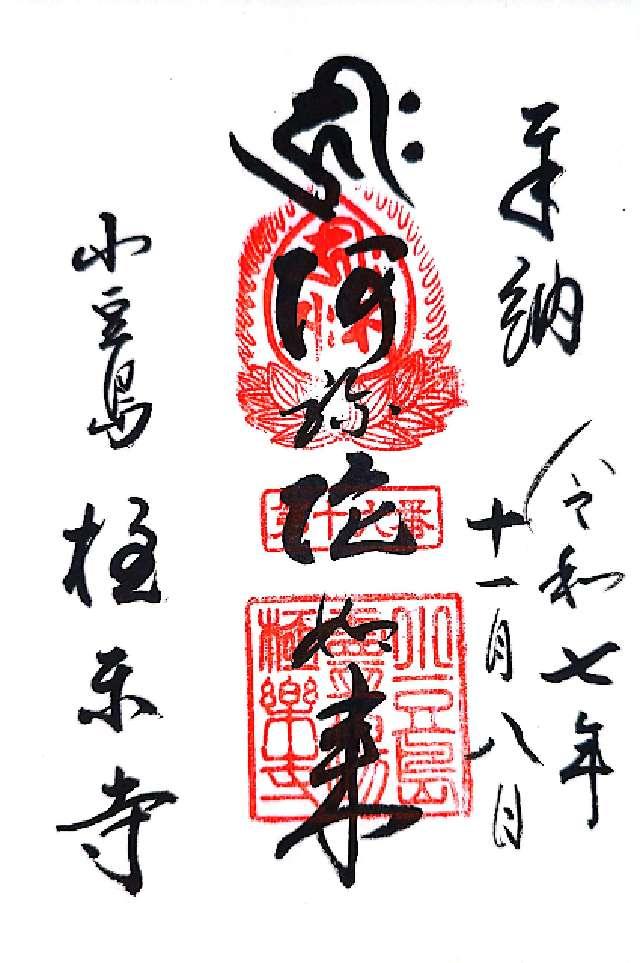 奉納
令和七年
十一月八日
ह्रीः
阿弥陀如来
第十六番
小豆島
靈場
極樂寺
小豆島
極楽寺